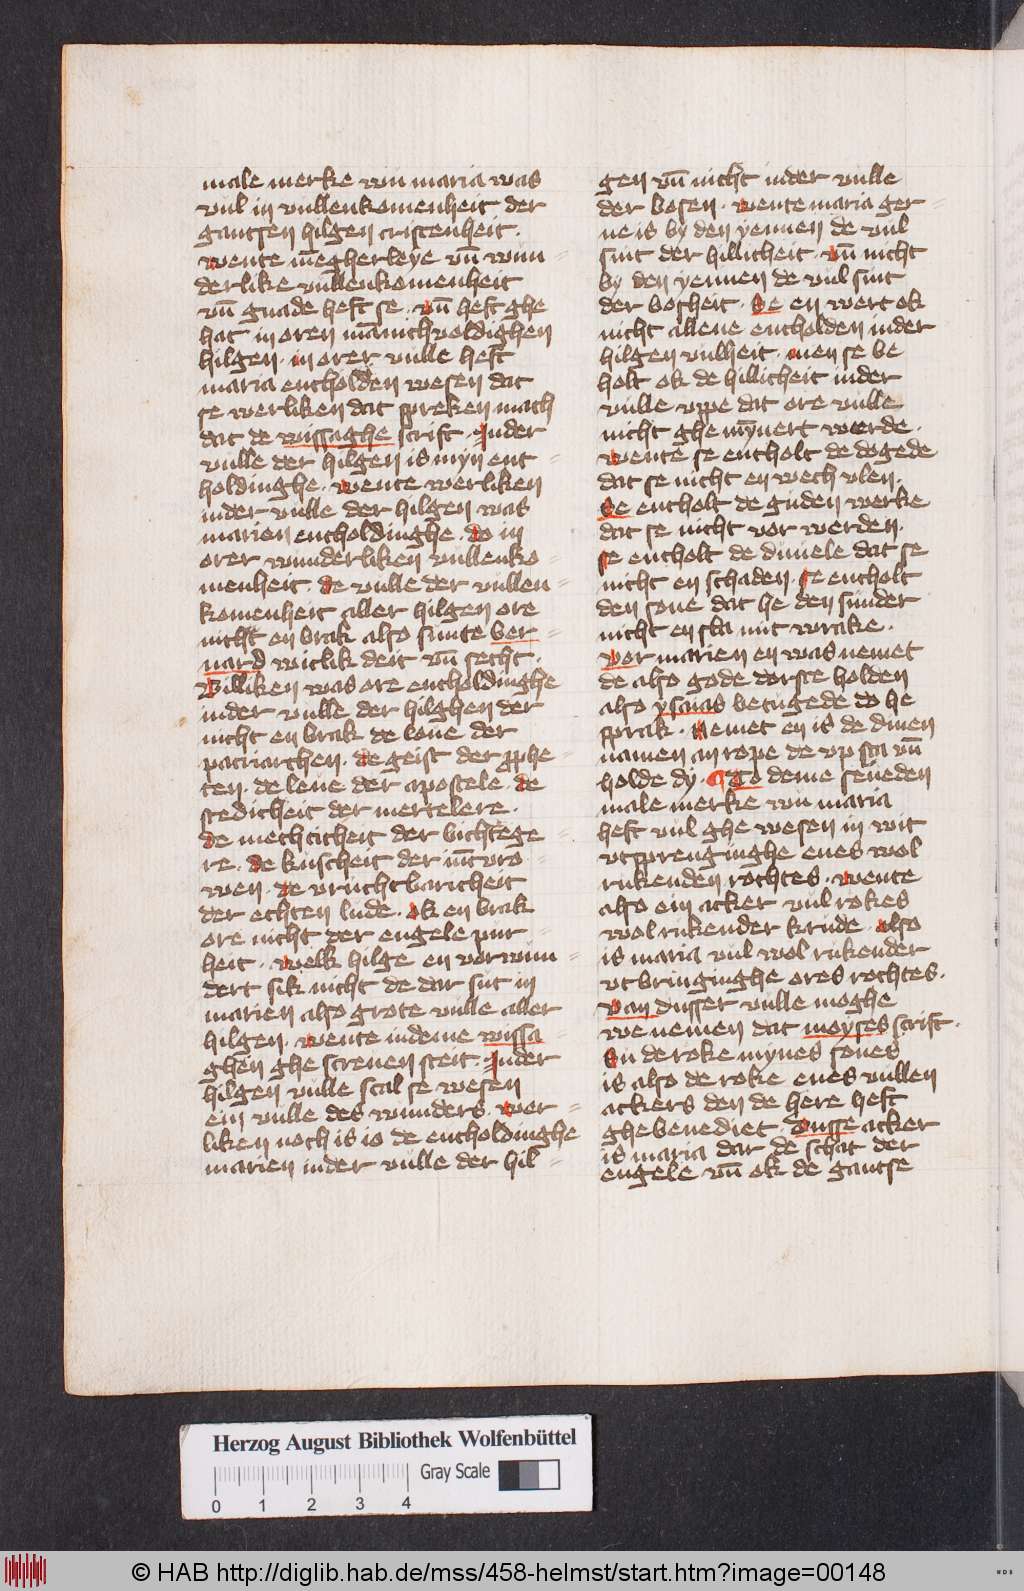 male merke wu maria was
vul in vullenkomenheit der
gantsen hilgen cristenheit.
wente mēgherleye vn̄ wun=
derlike vullenkomenheit
vn̄ gnade heft se. vn̄ heft ghe
hat in oren mānichvoldighen
hilgen. in orer vulle heft
maria entholden wesen dat
se werliken dat spreken mach
dat de wissaghe scrift. Inder
vulle der hilgen is myn ent=
holdinghe. wente werliken
inder vulle der hilgen was
marien entholdinghe. do in
orer wunderliken vullenko=
menheit. de vulle der vullen=
komenheit aller hilgen ore
nicht en brak also sunte ber=
nard wiclik deit vn̄ secht.
Billiken was ore entholdinghe
inder vulle der hilghen der
nicht en brak de loue der
patriarchen. de geist der pphe=
ten. de leue der apostele. de
stedicheit der mertelere.
de mechticheit der bichtege=
re. de kuscheit der iūcvro=
wen. de vruchtbaricheit
der echten lude. ok en brak
ore nicht der engele pur=
heit. welk hilge en vorwun=
dert sik nicht de dar sut in
marien also grote vulle aller
hilgen. wente indeme wissa=
ghen ghe screuen steit. Inder
hilgen vulle scal se wesen
ein vulle des wunders. wer=
liken noch is io de entholdinghe
marien inder vulle der hil=
gen vn̄ nicht inder vulle
der bosen. wente maria ger=
ne is by den yennen de vul
sint der hillicheit. vn̄ nicht
by den yennen de vul sint
der bosheit. Se en wert ok
nicht allene entholden inder
hilgen vulheit. men se be
holt ok de hillicheit inder
vulle vppe dat ore vulle
nicht ghe mȳnert werde.
wente se entholt de dogede
dat se nicht en wech vlen.
Se entholt de guden werke
dat se nicht vor werden.
se entholt de duuele dat se
nicht en schaden. se entholt
den sone dat he den sunder
nicht en sla mit wrake.
vor marien en was nemet
de also gode dorste holden
also ysaias betugede do he
sprak. Nemet en is de dinen
namen an rope de vp sta vn̄
holde dy. To deme seueden
male merke wu maria
heft vul ghe wesen in wit
vtsprenginghe enes wol
rukenden rochtes. wente
also ein acker vul rokes
wol rukender krude. also
is maria vul wol rukender
vtbringinghe ores rochtes.
van dusser vulle moghe
we nemen dat moyses scrift.
Su de roke mynes sones
is also de roke enes vullen
ackers den de here heft
ghebenediet. Dusse acker
is maria dar de schat der
engele vn̄ ok de gantse
Herzog August Bibliothek Wolfenbüttel
Gray Scale
0 1 2 3 4
© HAB http://diglib.hab.de/mss/458-helmst/start.htm?image=00148